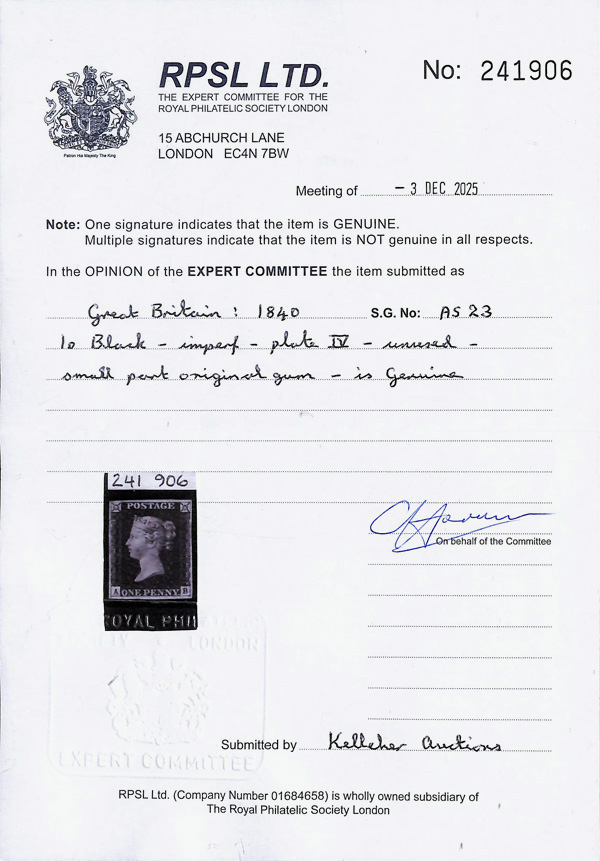 RPSL LTD.
THE EXPERT COMMITTEE FOR THE
ROYAL PHILATELIC SOCIETY LONDON
No: 241906
Patron His Majesty The King
15 ABCHURCH LANE
LONDON EC4N 7BW
Meeting of – 3 DEC 2025
Note: One signature indicates that the item is GENUINE.
Multiple signatures indicate that the item is NOT genuine in all respects.
In the OPINION of the EXPERT COMMITTEE the item submitted as
Great Britain: 1840 S.G. No: AS 23
1D Black - imperf - plate IV - unused -
small part original gum - is Genuine
241 906
POSTAGE
A ONE PENNY B
ROYAL PHI
On behalf of the Committee
LONDON
EXPERT COMMITTEE
Submitted by Kelleher Auctions
RPSL Ltd. (Company Number 01684658) is wholly owned subsidiary of
The Royal Philatelic Society London